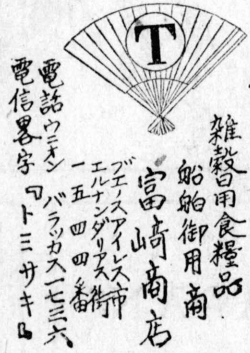 T
雑穀日用食糧品
船舶御用商
富﨑商店
ブエノスアイレス市
エルナンダリアス街
一五四四番
電話ウニオン バラッカス一七三六
電信畧字『トミサキ』